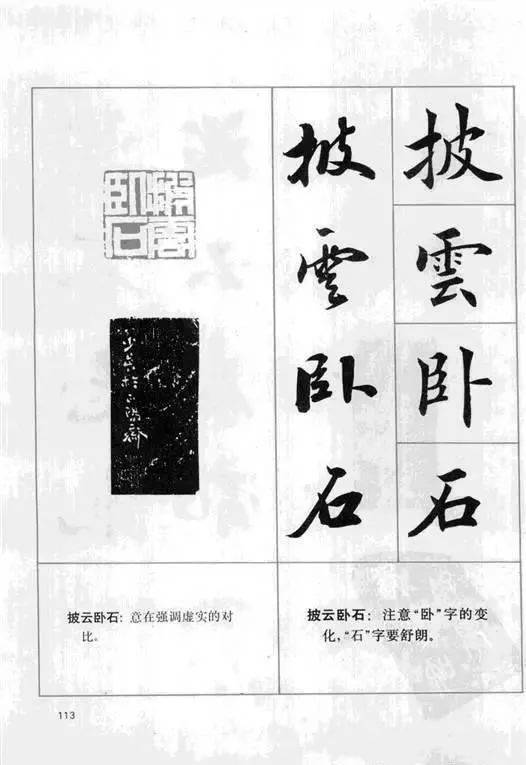 披雲卧石
披雲卧石
披雲卧石
披云卧石: 意在强调虚实的对
比。
披云卧石: 注意“卧”字的变
化,“石”字要舒朗。
113